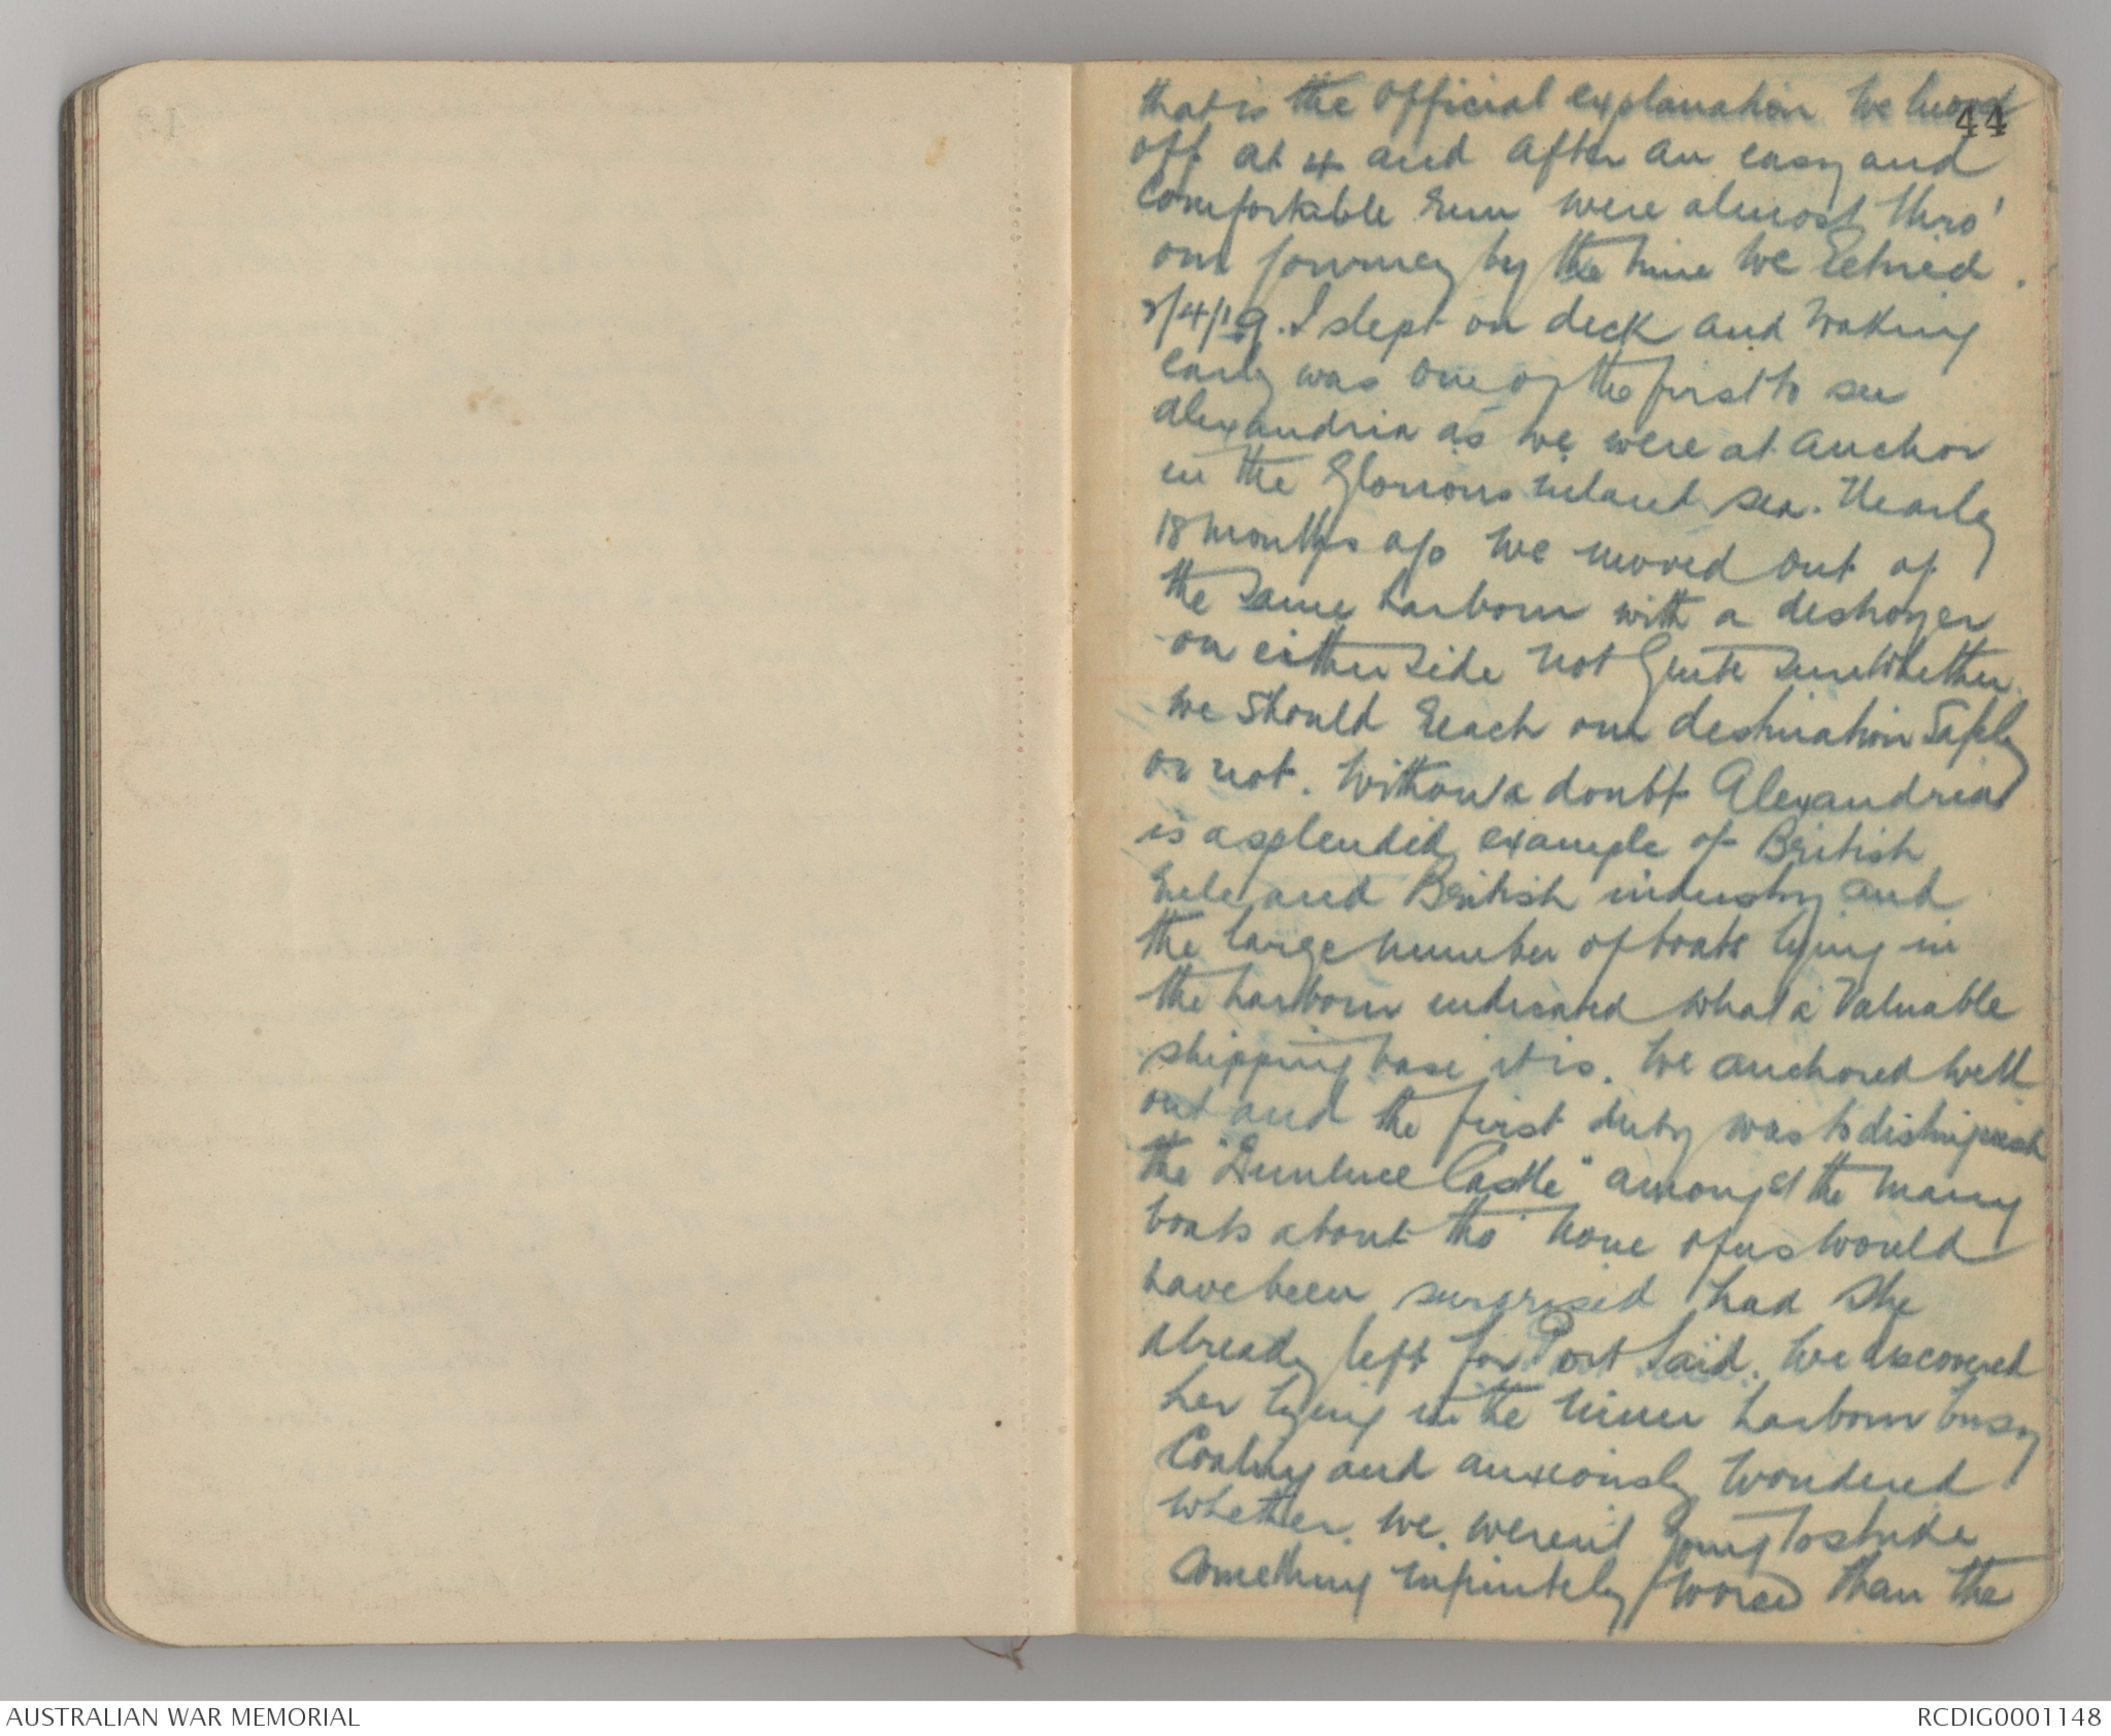 that is the official explanation We moved
44
off at 4 and after an easy and
comfortable run were almost thro'
our journey by the time we retired.
2/4/19. I slept on deck and waking
early was one of the first to see
Alexandria as we were at anchor
in the glorious inland sea. Nearly
18 months ago we moved out of
the same harbour with a destroyer
on either side not quite sure whether
we should reach our destination safely
or not. Without a doubt Alexandria
is a splendid example of British
rule and British industry and
the large number of boats lying in
the harbour indicated what a valuable
shipping base it is. We anchored well
out and the first duty was to distinguish
the "Dunluce Castle" amongst the many
boats about tho' none of us would
have been surprised had she
already left for Port Said. We discovered
her lying in the inner harbour busy
coaling and anxiously wondered
whether we weren't going to strike
something infinitely worse than the
AUSTRALIAN WAR MEMORIAL
RCDIG0001148